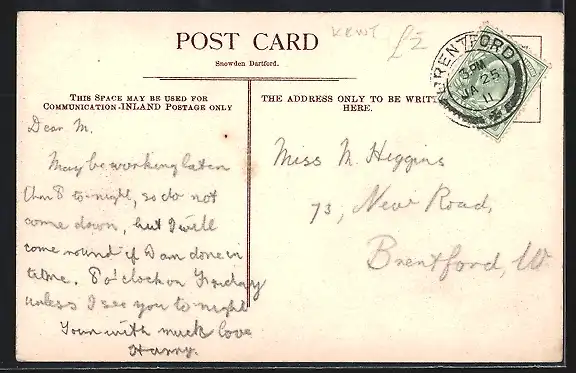 KENT
£2
POST CARD
Snowden Dartford.
BRENTFORD
3 PM
JA 25
11
THIS SPACE MAY BE USED FOR
COMMUNICATION-INLAND POSTAGE ONLY
THE ADDRESS ONLY TO BE WRIT
HERE.
Dear M.
May be working later
than 8 to-night, so do not
come down, but I will
come round if I am done in
time. 8 o'clock on Friday
unless I see you to night
Yours with much love
Harry.
Miss M. Higgins
73, New Road,
Brentford, W.